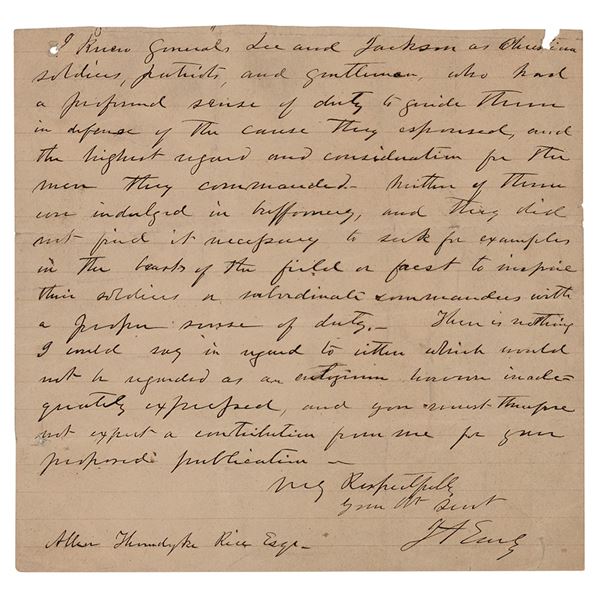 I knew Generals Lee and Jackson as Christian
soldiers, patriots, and gentlemen, who had
a profound sense of duty to guide them
in defense of the cause they espoused, and
the highest regard and consideration for the
men they commanded - Neither of them
ever indulged in buffoonery, and they did
not find it necessary to seek for examples
in the beasts of the field or forest to inspire
their soldiers or subordinate commanders with
a proper sense of duty. - There is nothing
I could say in regard to either which would
not be regarded as an eulogium however inade-
quately expressed, and you must therefore
not expect a contribution from me for your
proposed publication -
Very Respectfully
Your Obt Servt
J A Early
Allen Thorndyke Rice Esqr -